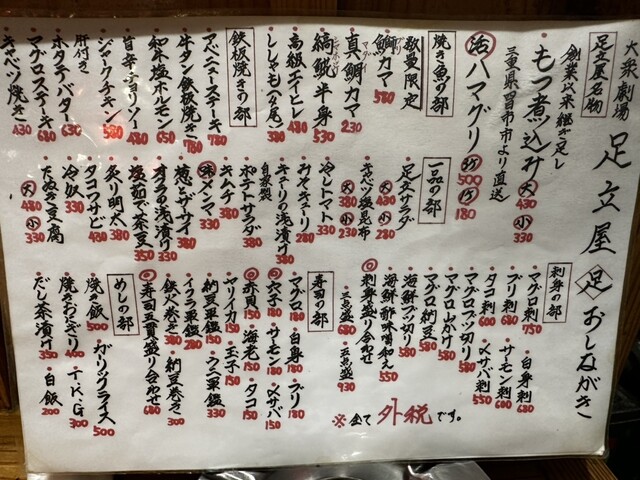 大衆劇場 足立屋 足 おしながき
足立屋名物
創業以来継ぎ足し
もつ煮込み 大430 小330
三重県桑名市より直送
活ハマグリ 2ケ500 1ケ180
焼き魚の部
数量限定
鰤カマ 580
真鯛カマ 230
縞鯱半身 530
高級エイヒレ 480
ししゃも(4尾) 380
鉄板焼きの部
アベニューステーキ 780
牛タン鉄板焼き 780
和牛塩ホルモン 650
旨辛チョリソー 480
ジャークチキン 580
肝付き
ホタテバター 630
マグロステーキ 680
キャベツ焼き 430
一品の部
足立サラダ 大430 小280
キャベツ塩昆布 大380 小230
冷しトマト 330
みそきゅーり 280
きゅーりの浅漬け 380
自家製
ポテトサラダ 380
キムチ 380
味メンマ 330
葱とザーサイ 380
オクラの浅漬け 330
塩茹で茶豆 350
炙り明太 380
タコワサビ 480
冷奴 330
たぬき豆腐 大480 小330
刺身の部
マグロ刺 750
ブリ刺 680
白身刺 680
タコ刺 600
サーモン刺 600
〆サバ刺 550
マグロブツ切り 580
マグロ山かけ 580
マグロ納豆 580
海鮮ブツ切り 580
海鮮酢味噌和え 550
刺身盛り合わせ
三点盛 680
五点盛 930
寿司の部
マグロ 180
白身 180
ブリ 180
穴子 180
サーモン 180
〆サバ 150
赤貝 150
海老 150
タコ 150
ヤリイカ 150
玉子 150
納豆軍艦 150
ウニ軍艦 330
イクラ軍艦 280
鉄火巻き 380
納豆巻き 300
寿司五貫盛り合わせ 680
めしの部
焼き飯 500
ガーリックライス 500
焼きおにぎり 400
T.K.G 300
だし茶漬け 350
白飯 200
※全て外税です。